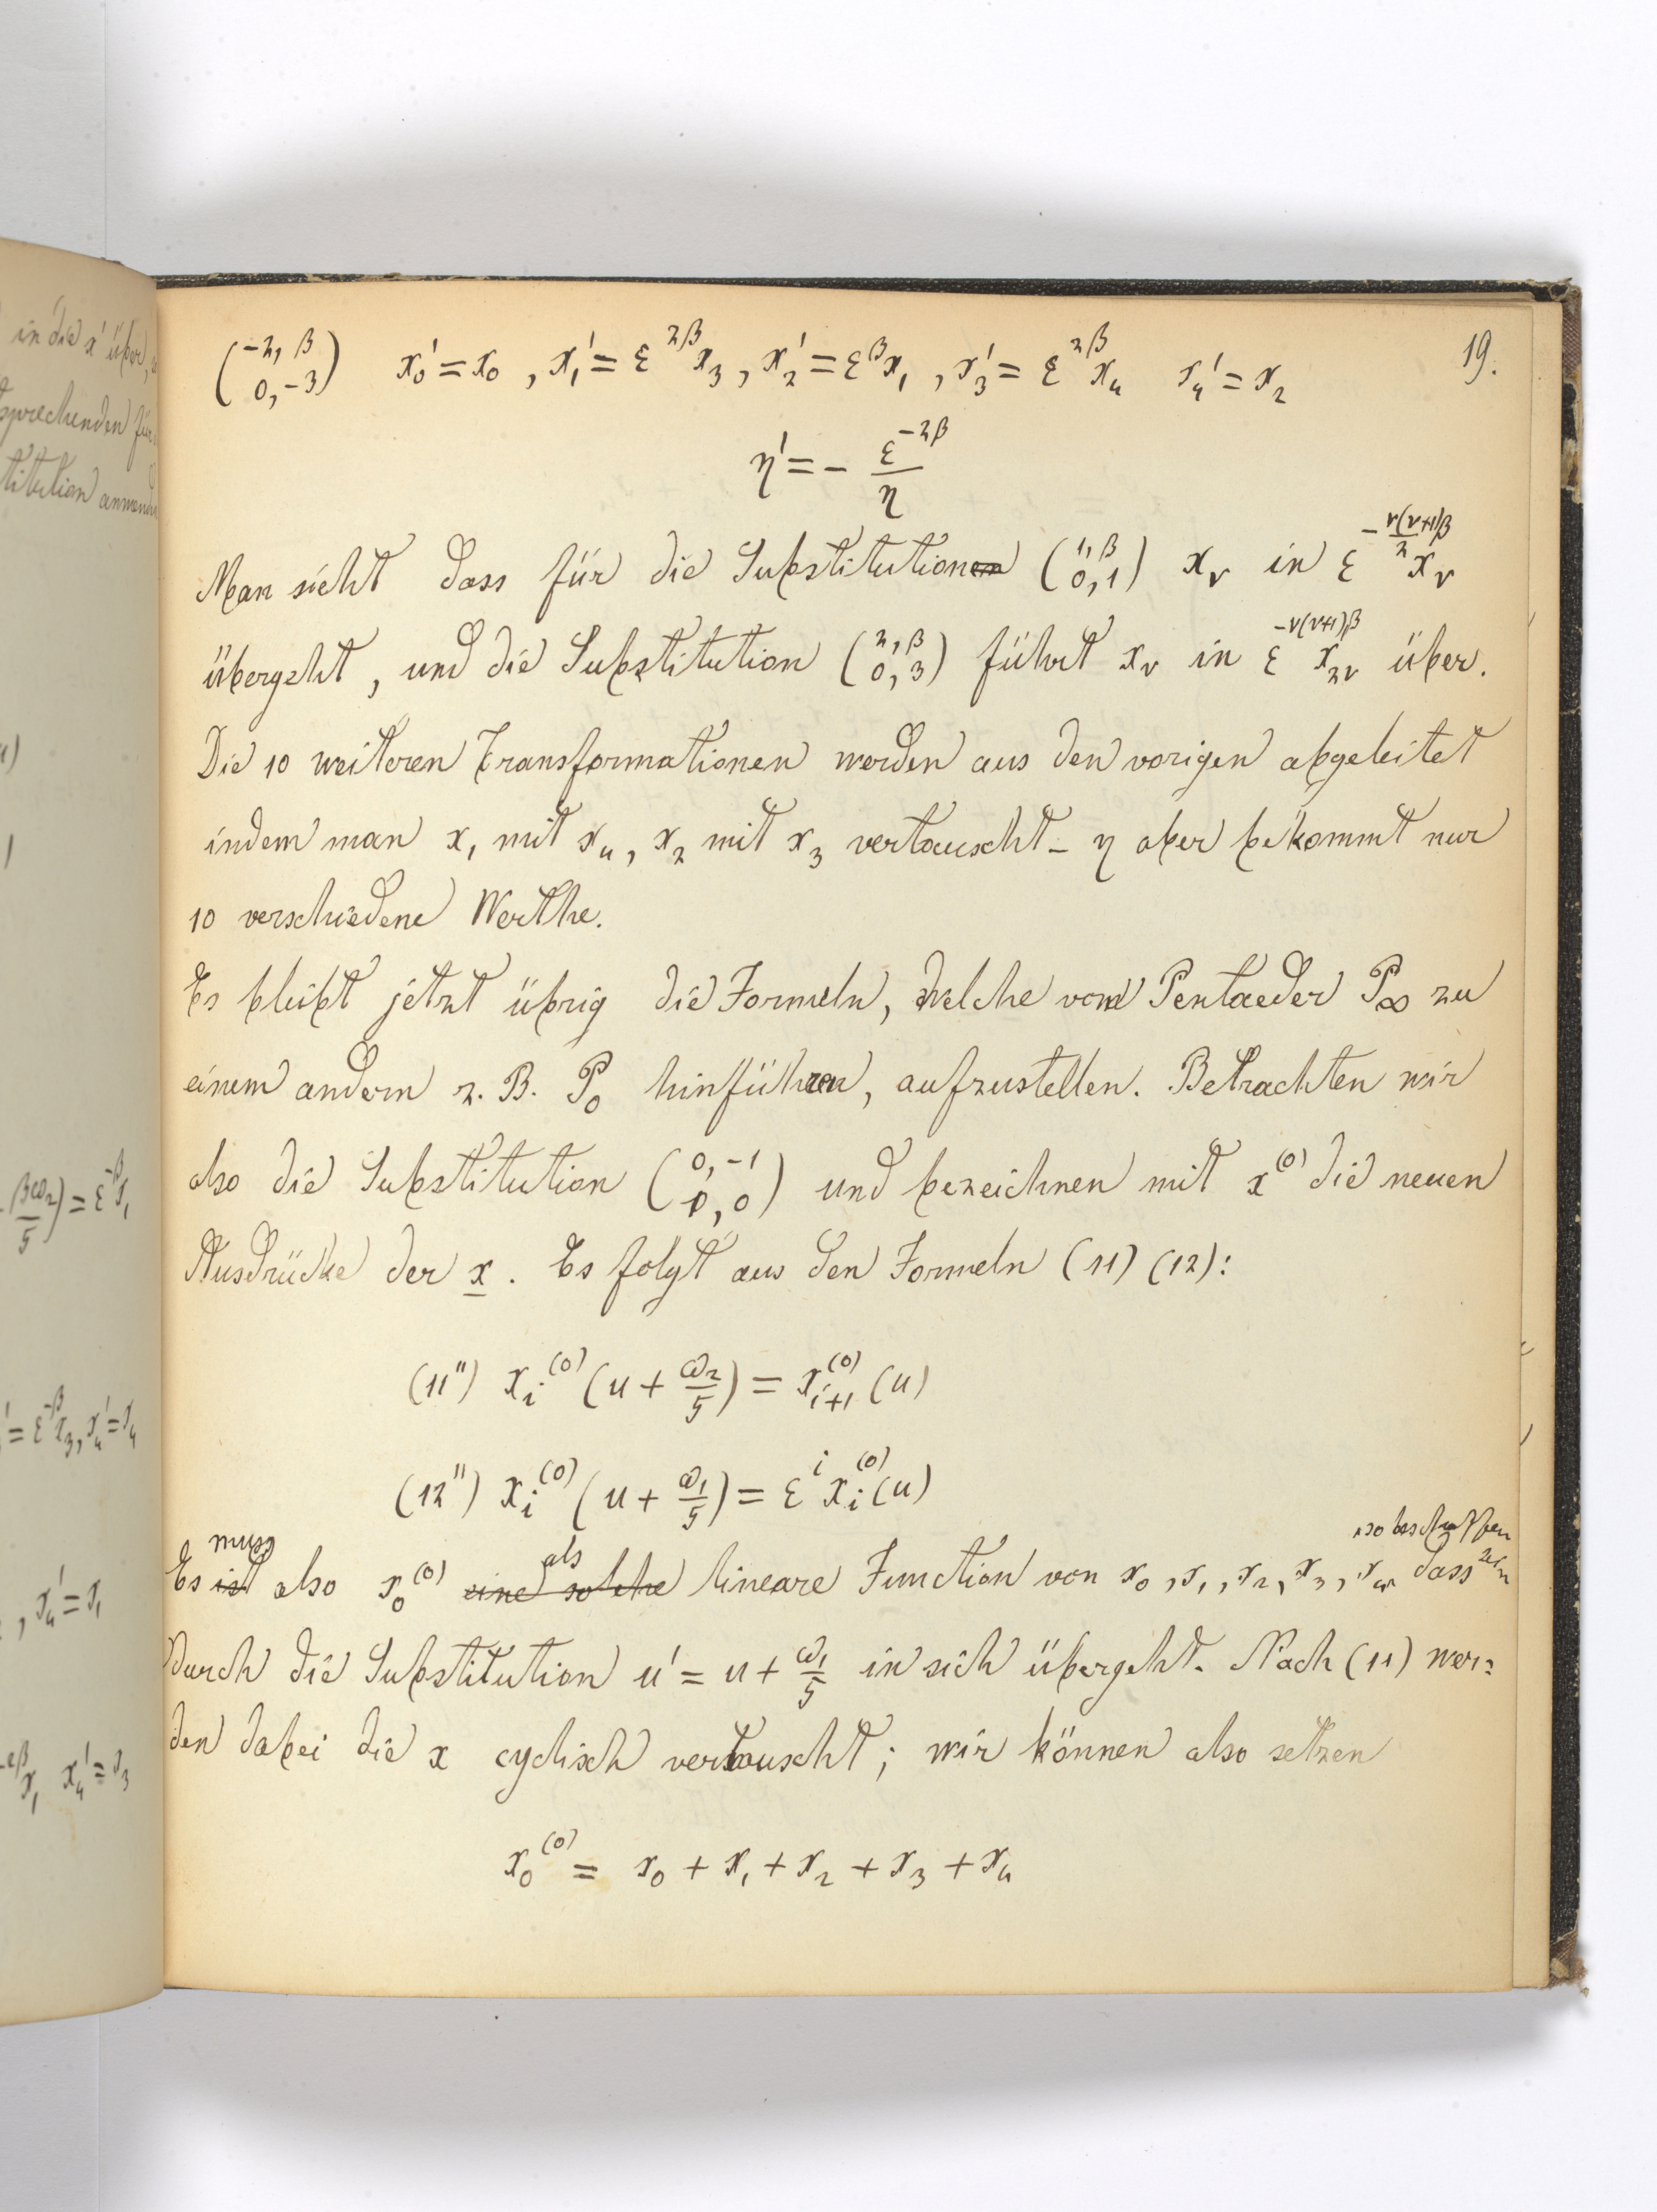 in die x' über,
sprechenden für
titution anwend
βω₂/5) = ε^-β x₁
' = ε^-β x₃, x₄' = x₄
, x₄' = x₁
x₁ x₄' = x₃
19.
(-2, β / 0, -3) x₀' = x₀, x₁' = ε^2β x₃, x₂' = ε^β x₁, x₃' = ε^2β x₄ x₄' = x₂
η' = - ε^-2β / η
Man sieht dass für die Substitutionen (1, β / 0, 1) xᵥ in ε^-ν(ν+1)β/2 xᵥ
übergeht, und die Substitution (2, β / 0, 3) führt xᵥ in ε^-ν(ν+1)β x₂ᵥ über.
Die 10 weiteren Transformationen werden aus den vorigen abgeleitet
indem man x₁ mit x₄, x₂ mit x₃ vertauscht – η aber bekommt nur
10 verschiedene Werthe.
Es bleibt jetzt übrig die Formeln, welche vom Pentaeder P∞ zu
einem andern z. B. P₀ hinführen, aufzustellen. Betrachten wir
also die Substitution (0, -1 / 1, 0) und bezeichnen mit x^(0) die neuen
Ausdrücke der x. Es folgt aus den Formeln (11) (12):
(11'') xᵢ^(0) (u + ω₂/5) = xᵢ₊₁^(0) (u)
(12'') xᵢ^(0) (u + ω₁/5) = ε^i xᵢ^(0) (u)
muss als so beschaffen sein
Es ist also x₀^(0) eine solche lineare Function von x₀, x₁, x₂, x₃, x₄, dass
durch die Substitution u' = u + ω₁/5 in sich übergeht. Nach (11) wer=
den dabei die x cyclisch vertauscht; wir können also setzen
x₀^(0) = x₀ + x₁ + x₂ + x₃ + x₄